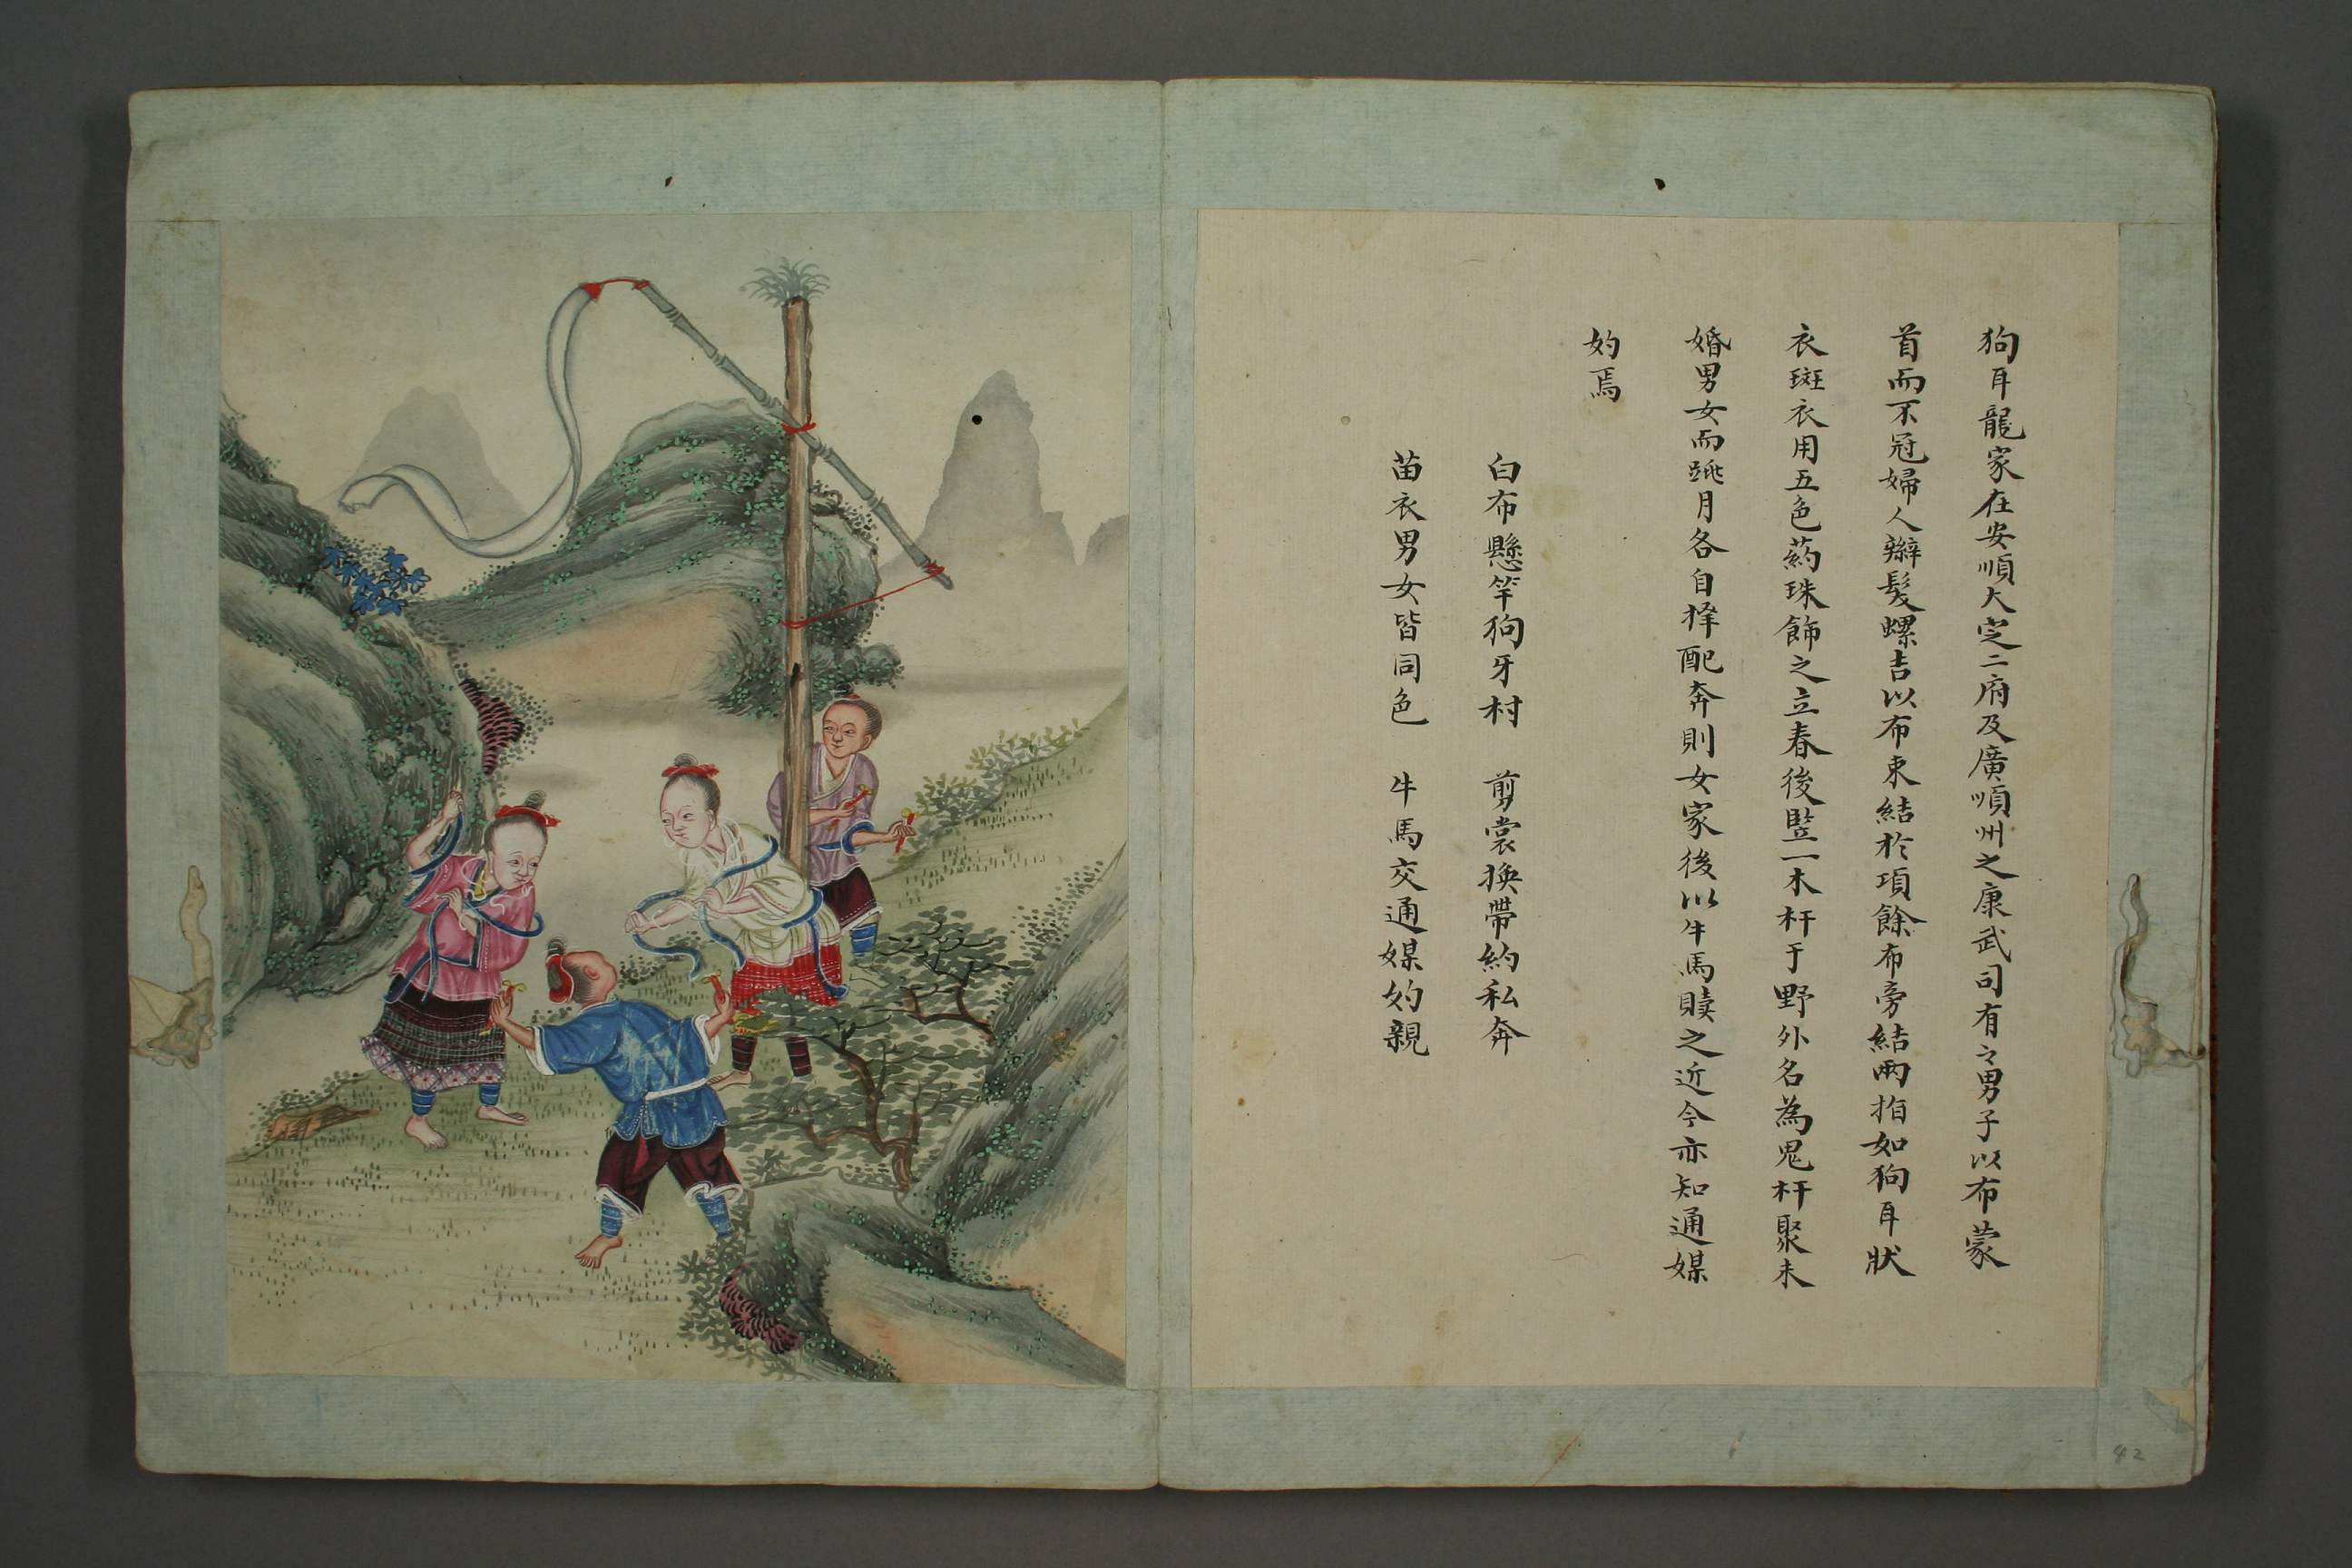 狗耳龍家在安順大定二府及廣順州之康武司有之男子以布蒙
首而不冠婦人辮髮螺吉以布束結於項餘布旁結兩指如狗耳狀
衣斑衣用五色葯珠飾之立春後豎一木杆于野外名為鬼杆聚未
婚男女而跳月各自擇配奔則女家後以牛馬贖之近今亦知通媒
妁焉
白布懸竿狗牙村　剪裳換帶約私奔
苗衣男女皆同色　牛馬交通媒妁親
42